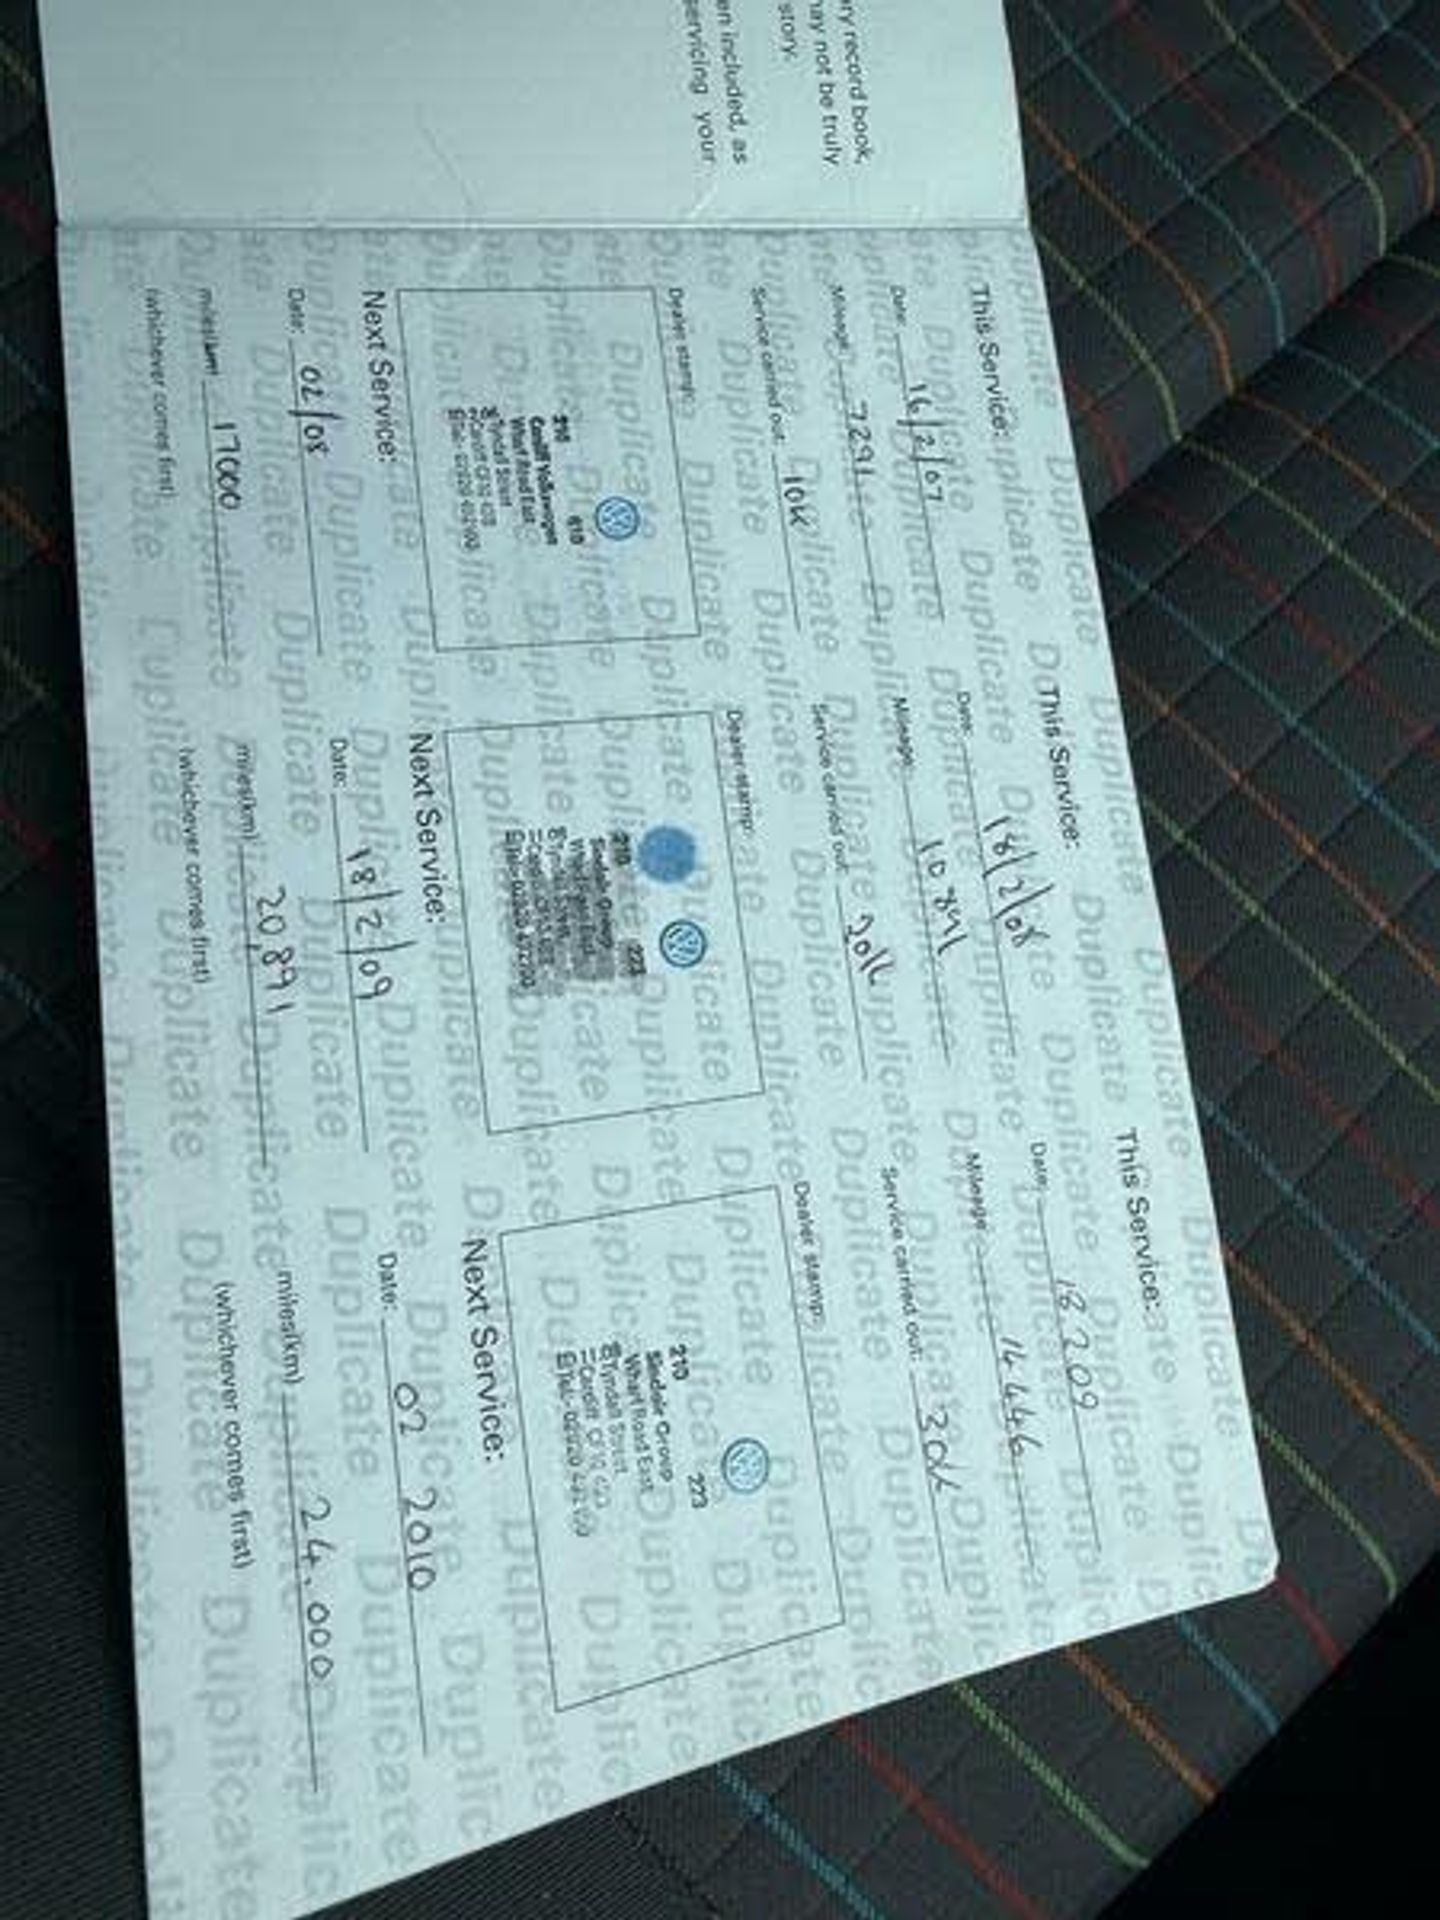 ry record book,
may not be truly
story.
en included, as
servicing your
This Service:
Date: 16/2/07
Mileage: 7291
Service carried out: 10K
Dealer stamp:
210 610
Cardiff Volkswagen
Wharf Road East
Tyndall Street
Cardiff CF10
Next Service:
Date: 02/08
miles(km) 17000
(whichever comes first)
This Service:
Date: 18/2/08
Mileage: 10891
Service carried out: 20K
Dealer stamp:
210 223
Sinclair Group
Next Service:
Date: 18/2/09
miles(km) 20,891
(whichever comes first)
This Service:
Date: 18 2 09
Mileage 14446
Service carried out: 30K
Dealer stamp:
210 223
Sinclair Group
Wharf Road East
Tyndall Street
Cardiff CF10
Next Service:
Date: 02 2010
miles(km) 24,000
(whichever comes first)
Duplicate Duplicate Duplicate Duplicate